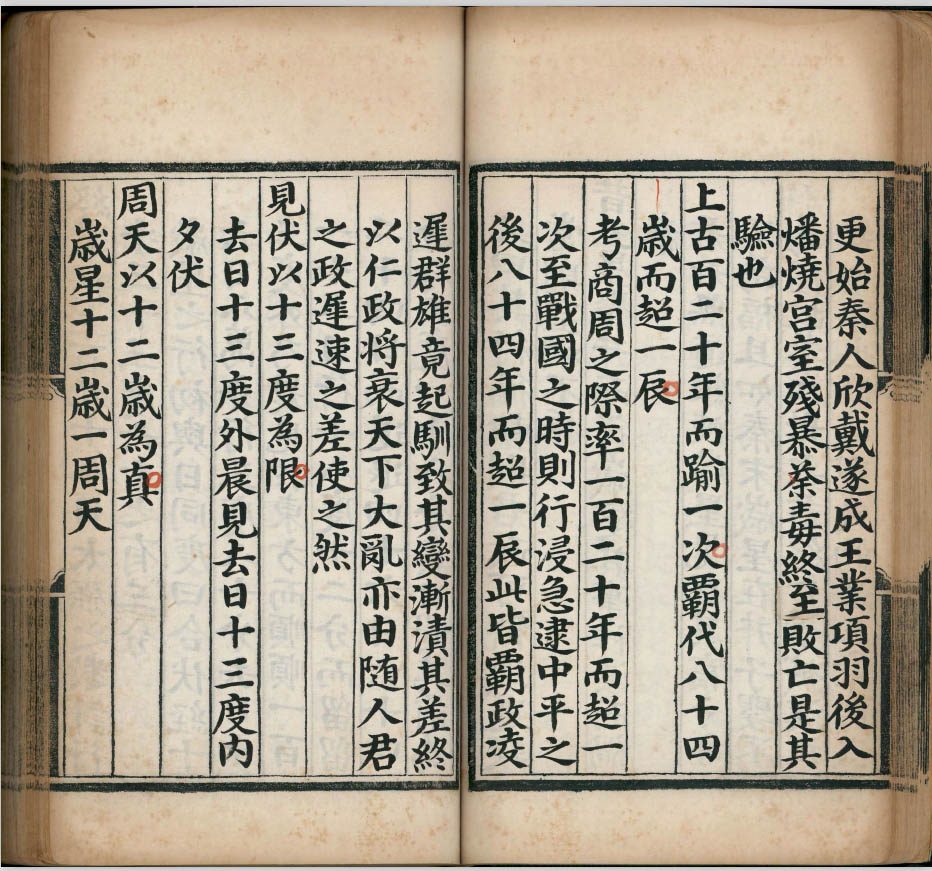 更始秦人欣戴遂成王業項羽後入
燔燒宮室殘暴荼毒終至敗亡是其
驗也
上古百二十年而踰一次覇代八十四
歲而超一辰
考商周之際率一百二十年而超一
次至戰國之時則行浸急逮中平之
後八十四年而超一辰此皆覇政凌
遲群雄竟起馴致其變漸漬其差終
以仁政將衰天下大亂亦由随人君
之政遲速之差使之然
見伏以十三度為限
去日十三度外晨見去日十三度內
夕伏
周天以十二歲為真
歲星十二歲一周天